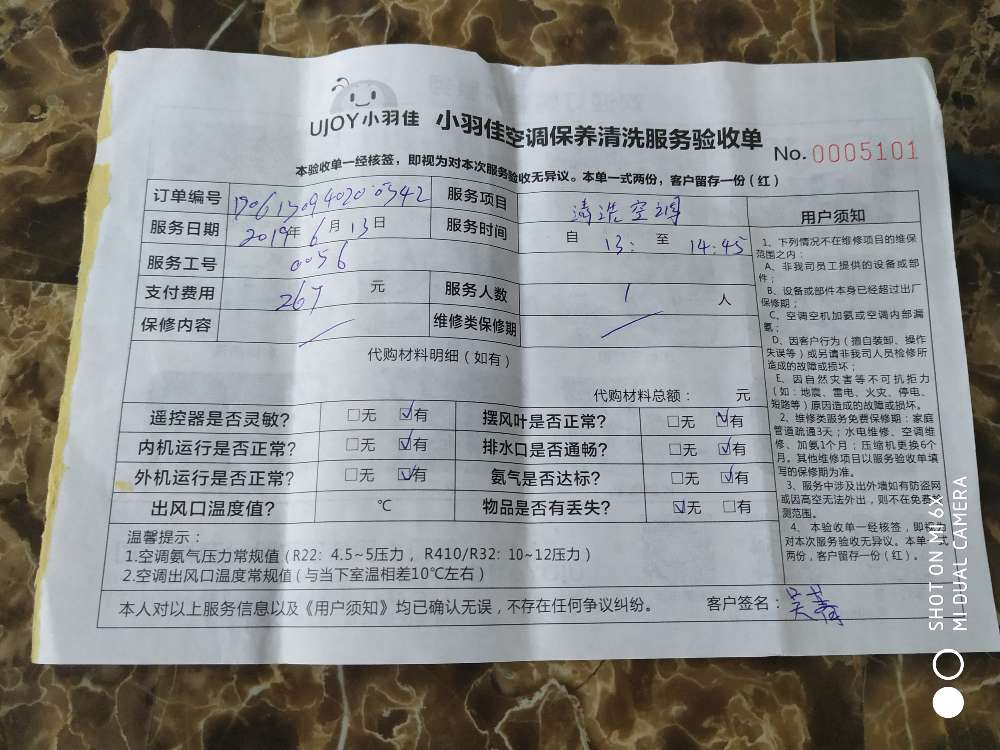 UJOY小羽佳 小羽佳空调保养清洗服务验收单
No. 0005101
本验收单一经核签，即视为对本次服务验收无异议。本单一式两份，客户留存一份（红）
订单编号 服务项目 清洗空调
服务日期 2019年6月13日 服务时间 自 13: 至 14:45
服务工号 0056
支付费用 267 元 服务人数 1 人
保修内容 / 维修类保修期 /
代购材料明细（如有）
代购材料总额： 元
遥控器是否灵敏？ □无 ☑有 摆风叶是否正常？ □无 ☑有
内机运行是否正常？ □无 ☑有 排水口是否通畅？ □无 ☑有
外机运行是否正常？ □无 ☑有 氨气是否达标？ □无 ☑有
出风口温度值？ ℃ 物品是否有丢失？ ☑无 □有
温馨提示：
1.空调氨气压力常规值（R22: 4.5~5压力， R410/R32: 10~12压力）
2.空调出风口温度常规值（与当下室温相差10℃左右）
本人对以上服务信息以及《用户须知》均已确认无误，不存在任何争议纠纷。 客户签名：
用户须知
1、下列情况不在维修项目的维保
范围之内：
A、非我司员工提供的设备或部
件；
B、设备或部件本身已经超过出厂
保修期；
C、空调空机加氨或空调内部漏
氨；
D、因客户行为（擅自装卸、操作
失误等）或另请非我司人员检修所
造成的故障或损坏；
E、因自然灾害等不可抗拒力
（如：地震、雷电、火灾、停电、
短路等）原因造成的故障或损坏。
2、维修类服务免费保修期：家庭
管道疏通3天；水电维修、空调维
修、加氨1个月；压缩机更换6个
月。其他维修项目以服务验收单填
写的保修期为准。
3、服务中涉及出外墙如有防盗网
或因高空无法外出，则不在免费
测范围。
4、本验收单一经核签，即视为
对本次服务验收无异议。本单一式
两份，客户留存一份（红）。
SHOT ON MI 6X
MI DUAL CAMERA